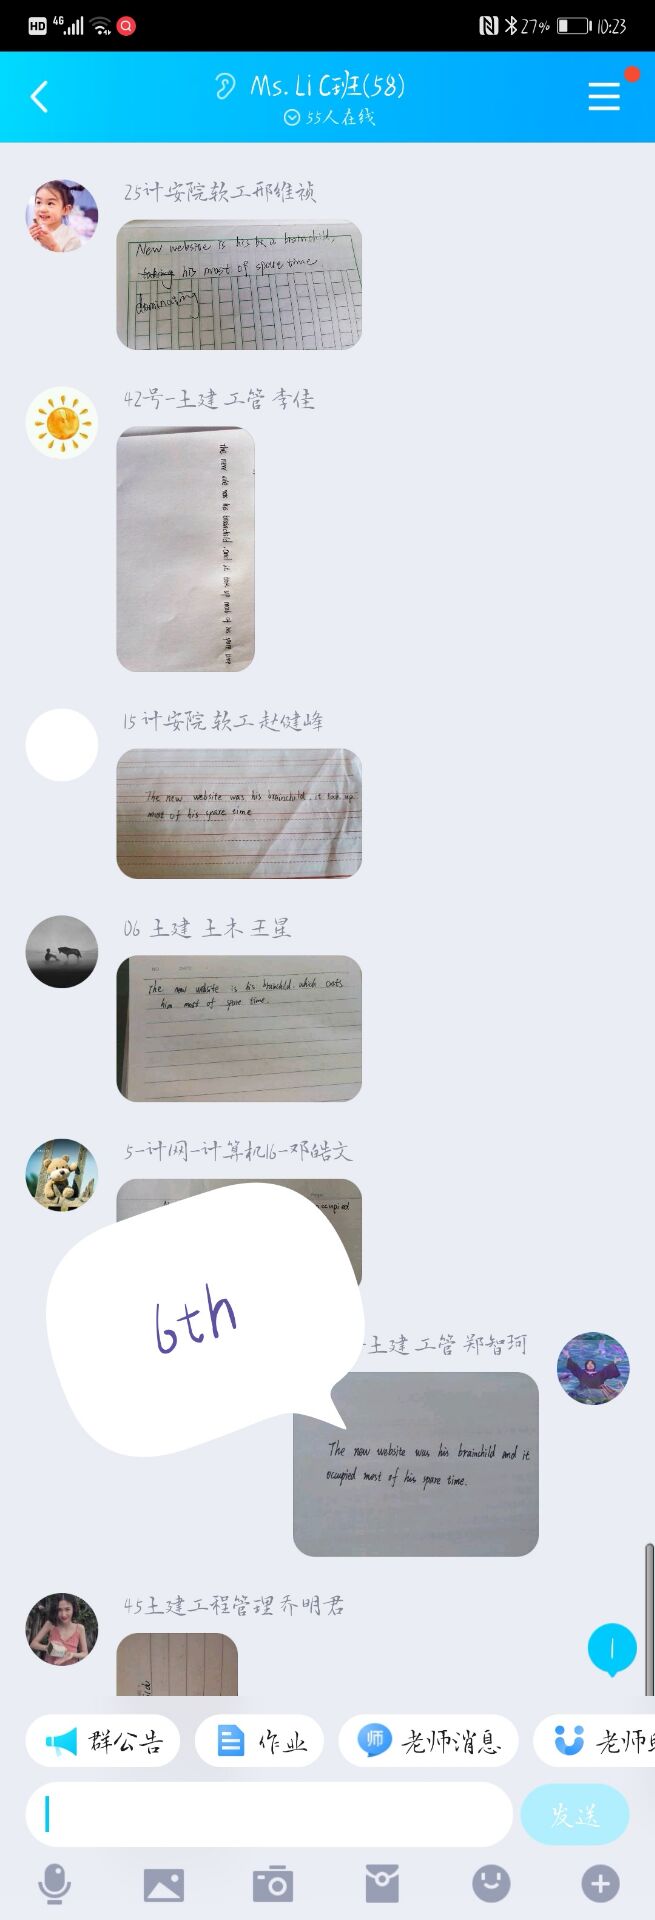 HD 4G 27% 10:23
Ms. Li C班(58)
55人在线
25计安院软工邢维祯
New website is his be a brainchild,
taking his most of spare time
dominating
42号-土建 工管 李佳
The new site was his brainchild, and it took up most of his spare time
15计安院 软工 赵健峰
The new website was his brainchild, it took up
most of his spare time
06 土建 土木 王星
NO. DATE
The new website is his brainchild which costs
him most of spare time.
5-计网-计算机16-邓皓文
occupied
6th
-土建 工管 郑智珂
The new website was his brainchild and it
occupied most of his spare time.
45土建工程管理乔明君
1
群公告 作业 师 老师消息 老师
发送